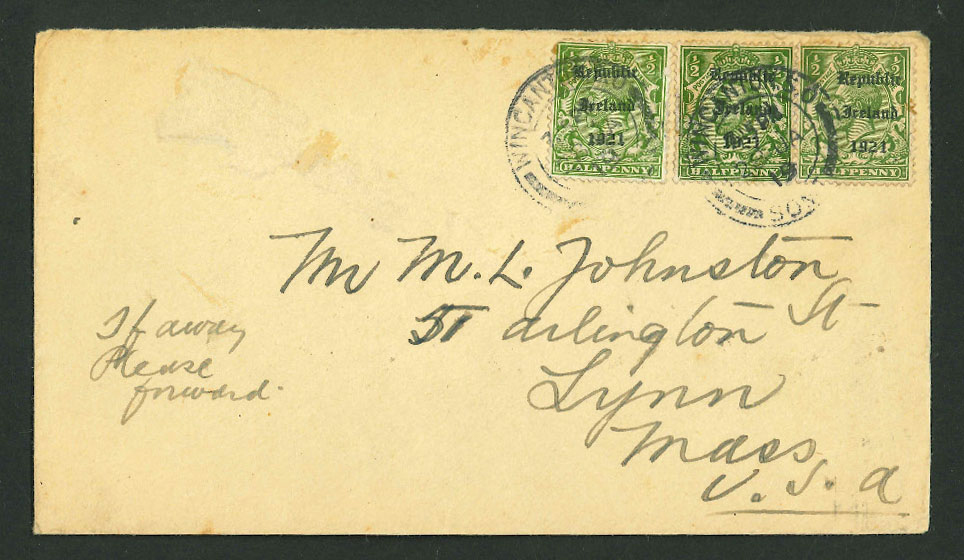 Republic Republic Republic
Ireland Ireland Ireland
1921 1921 1921
HALFPENNY HALFPENNY HALFPENNY
WINCANTON
WINCANTON
SOM
Mr M. L. Johnston
51 Arlington St
Lynn
Mass
U. S. A
If away
Please
forward